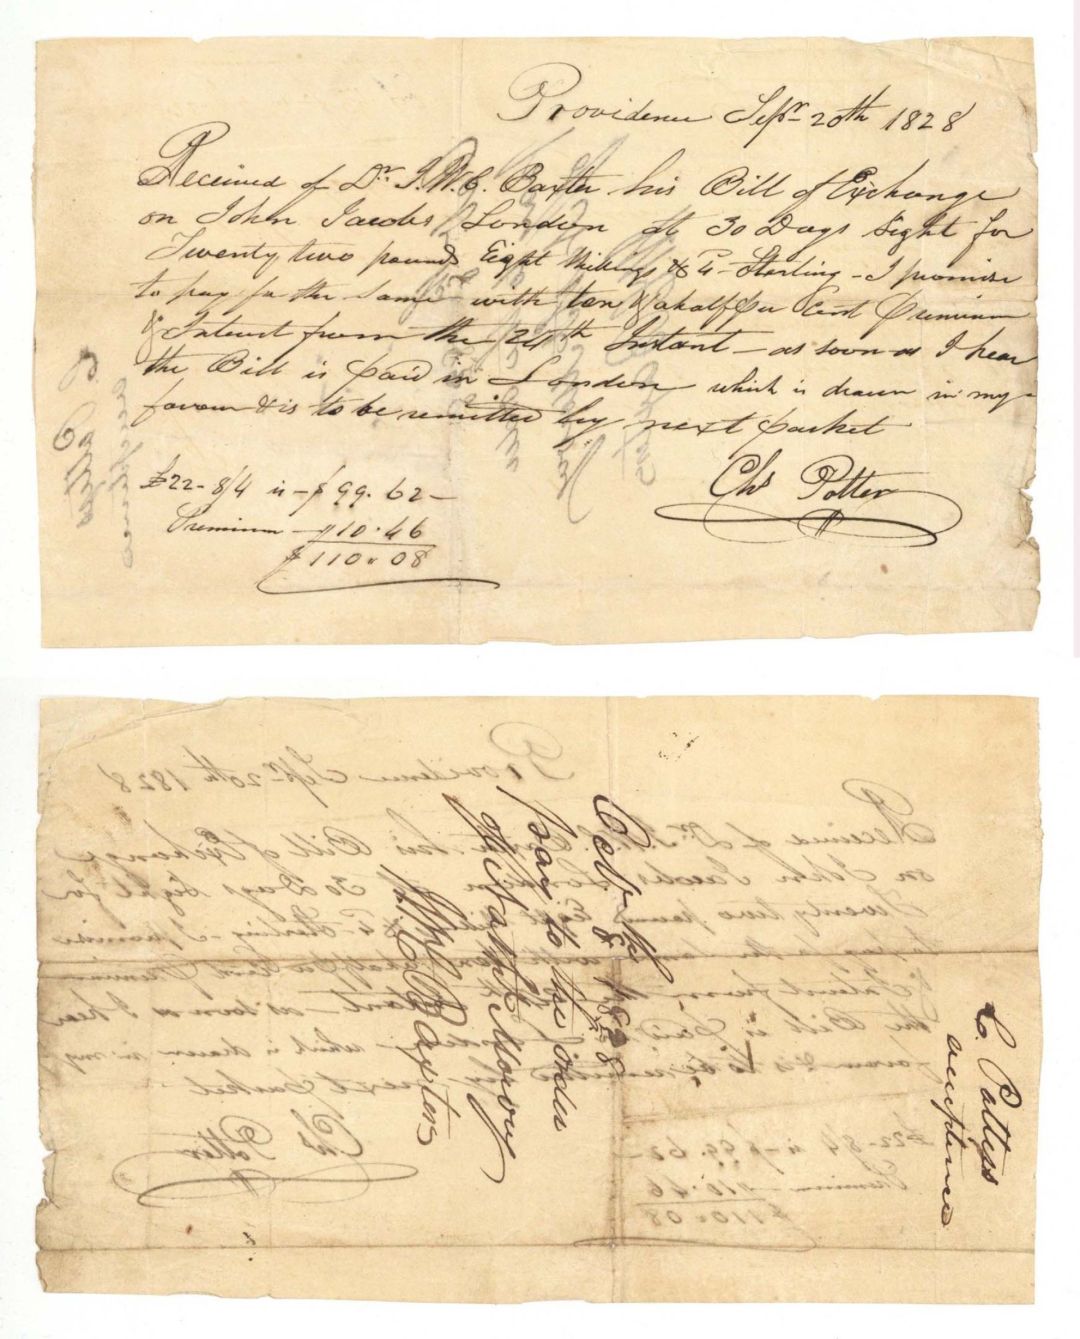 Providence Sepr. 20th 1828
Received of Dr. J.W.C. Baxter his Bill of Exchange
on John Jacobs London at 30 Days Sight for
Twenty two pounds Eight Shillings & 4 Sterling - I promise
to pay for the same with ten & a half per Cent Premium
& Interest from the 24th Instant - as soon as I hear
the Bill is paid in London which is drawn in my
favour & is to be remitted by next packet
Chs Potter
£22-8/4 is - $99.62-
Premium - 10.46
$110.08
1828
pay to the order
of
Baxter
C. Potters
acceptance